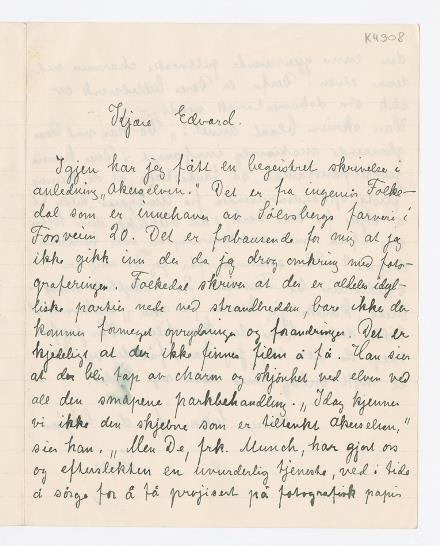 K4908
Kjære Edvard.
Igjen har jeg fått en begeistret skrivelse i
anledning „Akerselven." Det er fra ingeniør Folke-
dal som er innehaver av Sølvsbergs farveri i
Forsveien 20. Det er forbausende for mig at jeg
ikke gikk inn der da jeg drog omkring med foto-
graferingen. Folkedal skriver at der er aldeles idyl-
liske partier nede ved strandbredden, bare ikke der
kommer formeget oprydninger og forandringer. Det er
kjedelig at der ikke finnes film å få. Han sier
at der blir tap av charm og skjönhet ved elven ved
all den småpene parkbehandling. „Idag kjenner
vi ikke den skjebne som er tiltenkt Akerselven,"
sier han. „Men De, frk. Munch, har gjort os
og efterslekten en uvurderlig tjeneste, ved i tide
å sörge for å få projisert på fotografisk papir